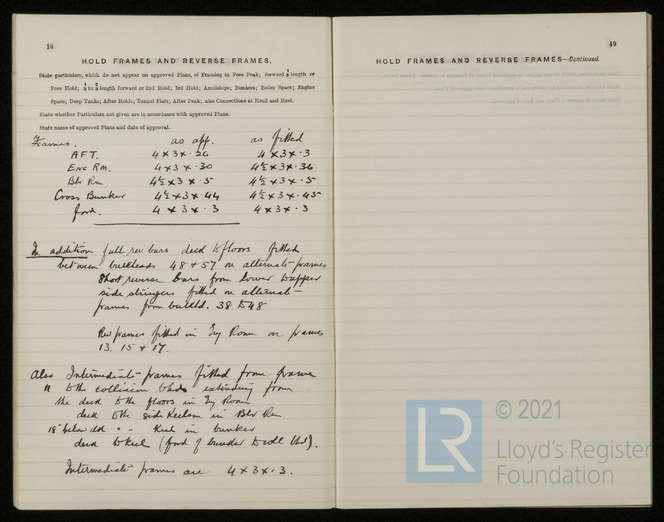 18
HOLD FRAMES AND REVERSE FRAMES.
State particulars, which do not appear on approved Plans, of Framing in Fore Peak; forward length or
Fore Hold; to length forward or 2nd Hold; 3rd Hold; Amidships; Bunkers; Boiler Space; Engine
Space; Deep Tanks; After Holds; Tunnel Flats; After Peak; also Connections at Head and Heel.
State whether Particulars not given are in accordance with approved Plans.
State name of approved Plans and date of approval.
Frames. as app. as fitted
AFT. 4 x 3 x .26 4 x 3 x .3
Eng Rm. 4 x 3 x .30 4½ x 3 x .36
Blr Rm 4½ x 3 x .5 4½ x 3 x .5
Cross Bunker 4½ x 3 x 44 4½ x 3 x .45
ford. 4 x 3 x .3 4 x 3 x .3
In addition full rev bars deck to floors fitted
between bulkheads 48 & 57 on alternate frames
Short reverse bars from lower to upper
side stringers fitted on alternate
frames from bulkhd. 38 to 48
Rev frames fitted in Eng Room on frames
13. 15 & 17.
Also Intermediate frames fitted from frame
11 to the collision extending from
the deck to the floors in Eng Room
deck to the side Keelson in Blr Rm
18" below dk " " Keel in bunker
deck to Keel (ford of bunker to coll bhd).
Intermediate frames are 4 x 3 x .3.
19
HOLD FRAMES AND REVERSE FRAMES—Continued.
© 2021
LR
Lloyd's Register
Foundation